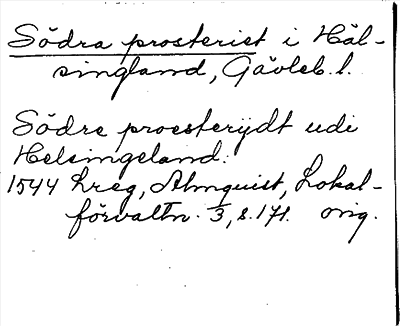 Södra prosteriet i Häl-
singland, Gävleb. l.
Södre proesterydt udi
Helsingeland:
1544 Lreg, Almquist, Lokal-
förvaltn. 3, s. 171. orig.